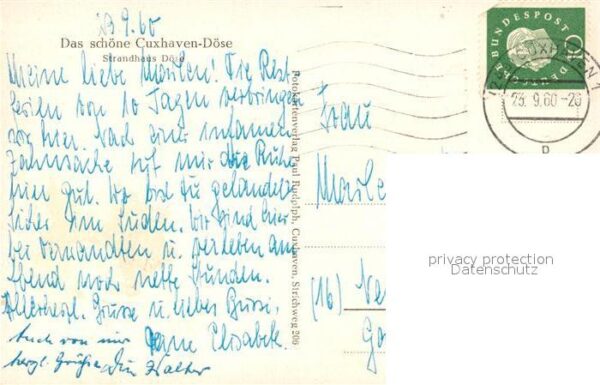 23.9.60
Das schöne Cuxhaven-Döse
Strandhaus Döse
Meine liebe Marlen! Die Rest-
ferien von 10 Tagen verbringen
wir hier. Nach einer infamen
Zahnsache tut mir die Ruhe
hier gut. Wo bist Du gelandet?
Sicher im Süden. Wir sind hier
bei Verwandten u. verleben am
Abend noch nette Stunden.
Allerherzl. Grüsse u. liebes Bussi,
Deine Elisabeth.
Auch von mir
herzl. Grüße Dein Walter
Fotokartenverlag Paul Rudolph, Cuxhaven, Strichweg 200
Frau
Marle
(16)
DEUTSCHE BUNDESPOST
10
CUXHAVEN 1
23. 9.60-20
p
privacy protection
Datenschutz